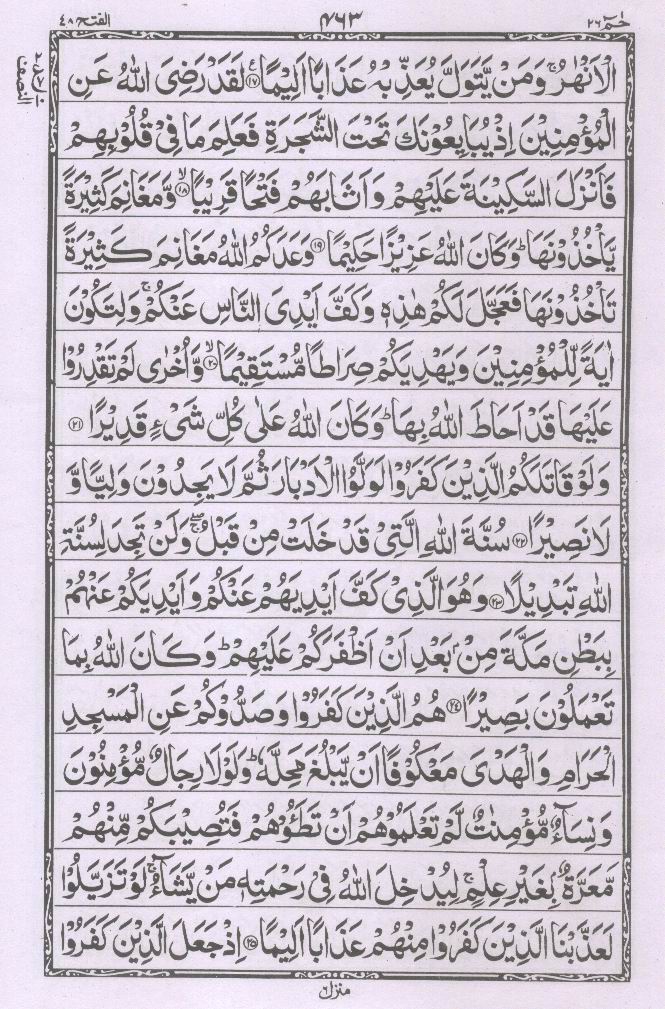 حٰمٓ ٢٦
٤٦٣
الفتح ٤٨
الْاَنْهٰرُ ۚ وَمَنْ يَّتَوَلَّ يُعَذِّبْهُ عَذَابًا اَلِيْمًا ﴿١٧﴾ لَقَدْ رَضِيَ اللّٰهُ عَنِ
الْمُؤْمِنِيْنَ اِذْ يُبَايِعُوْنَكَ تَحْتَ الشَّجَرَةِ فَعَلِمَ مَا فِيْ قُلُوْبِهِمْ
فَاَنْزَلَ السَّكِيْنَةَ عَلَيْهِمْ وَاَثَابَهُمْ فَتْحًا قَرِيْبًا ۙ﴿١٨﴾ وَّمَغَانِمَ كَثِيْرَةً
يَّاْخُذُوْنَهَا ؕ وَكَانَ اللّٰهُ عَزِيْزًا حَكِيْمًا ﴿١٩﴾ وَعَدَكُمُ اللّٰهُ مَغَانِمَ كَثِيْرَةً
تَاْخُذُوْنَهَا فَعَجَّلَ لَكُمْ هٰذِهٖ وَكَفَّ اَيْدِيَ النَّاسِ عَنْكُمْ ۚ وَلِتَكُوْنَ
اٰيَةً لِّلْمُؤْمِنِيْنَ وَيَهْدِيَكُمْ صِرَاطًا مُّسْتَقِيْمًا ۙ﴿٢٠﴾ وَّاُخْرٰى لَمْ تَقْدِرُوْا
عَلَيْهَا قَدْ اَحَاطَ اللّٰهُ بِهَا ؕ وَكَانَ اللّٰهُ عَلٰى كُلِّ شَيْءٍ قَدِيْرًا ﴿٢١﴾
وَلَوْ قَاتَلَكُمُ الَّذِيْنَ كَفَرُوْا لَوَلَّوُا الْاَدْبَارَ ثُمَّ لَا يَجِدُوْنَ وَلِيًّا وَّ
لَا نَصِيْرًا ﴿٢٢﴾ سُنَّةَ اللّٰهِ الَّتِيْ قَدْ خَلَتْ مِنْ قَبْلُ ۖۚ وَلَنْ تَجِدَ لِسُنَّةِ
اللّٰهِ تَبْدِيْلًا ﴿٢٣﴾ وَهُوَ الَّذِيْ كَفَّ اَيْدِيَهُمْ عَنْكُمْ وَاَيْدِيَكُمْ عَنْهُمْ
بِبَطْنِ مَكَّةَ مِنْۢ بَعْدِ اَنْ اَظْفَرَكُمْ عَلَيْهِمْ ؕ وَكَانَ اللّٰهُ بِمَا
تَعْمَلُوْنَ بَصِيْرًا ﴿٢٤﴾ هُمُ الَّذِيْنَ كَفَرُوْا وَصَدُّوْكُمْ عَنِ الْمَسْجِدِ
الْحَرَامِ وَالْهَدْيَ مَعْكُوْفًا اَنْ يَّبْلُغَ مَحِلَّهٗ ؕ وَلَوْلَا رِجَالٌ مُّؤْمِنُوْنَ
وَنِسَآءٌ مُّؤْمِنٰتٌ لَّمْ تَعْلَمُوْهُمْ اَنْ تَطَـُٔوْهُمْ فَتُصِيْبَكُمْ مِّنْهُمْ
مَّعَرَّةٌۢ بِغَيْرِ عِلْمٍ ۚ لِيُدْخِلَ اللّٰهُ فِيْ رَحْمَتِهٖ مَنْ يَّشَآءُ ۚ لَوْ تَزَيَّلُوْا
لَعَذَّبْنَا الَّذِيْنَ كَفَرُوْا مِنْهُمْ عَذَابًا اَلِيْمًا ﴿٢٥﴾ اِذْ جَعَلَ الَّذِيْنَ كَفَرُوْا
منزل ٦